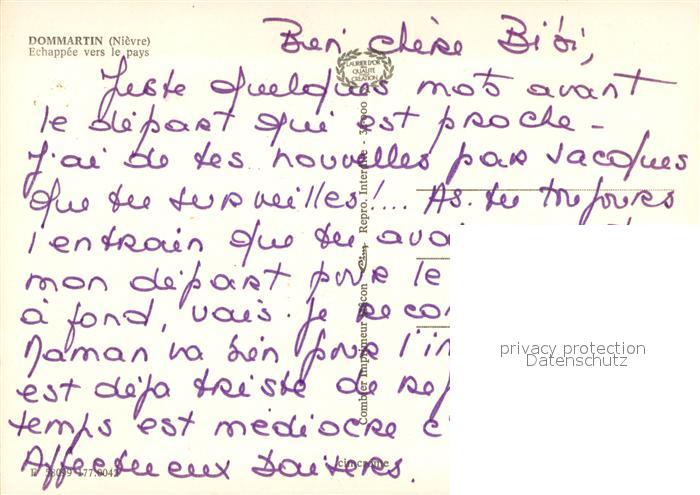 DOMMARTIN (Nièvre)
Echappée vers le pays
Bien chère Bibi,
LAURIER D'OR
QUALITÉ
CRÉATION
Juste quelques mots avant
le départ qui est proche -
J'ai de tes nouvelles par Jacques
que tu surveilles !.... As-tu toujours
l'entrain que tu
mon départ pour le
à fond, vais-je
Maman va bien pour
est déjà triste de
temps est médiocre
Affectueux baisers.
Combier Imprimeur Mâcon
Repro. Interdite -
cim
privacy protection
Datenschutz